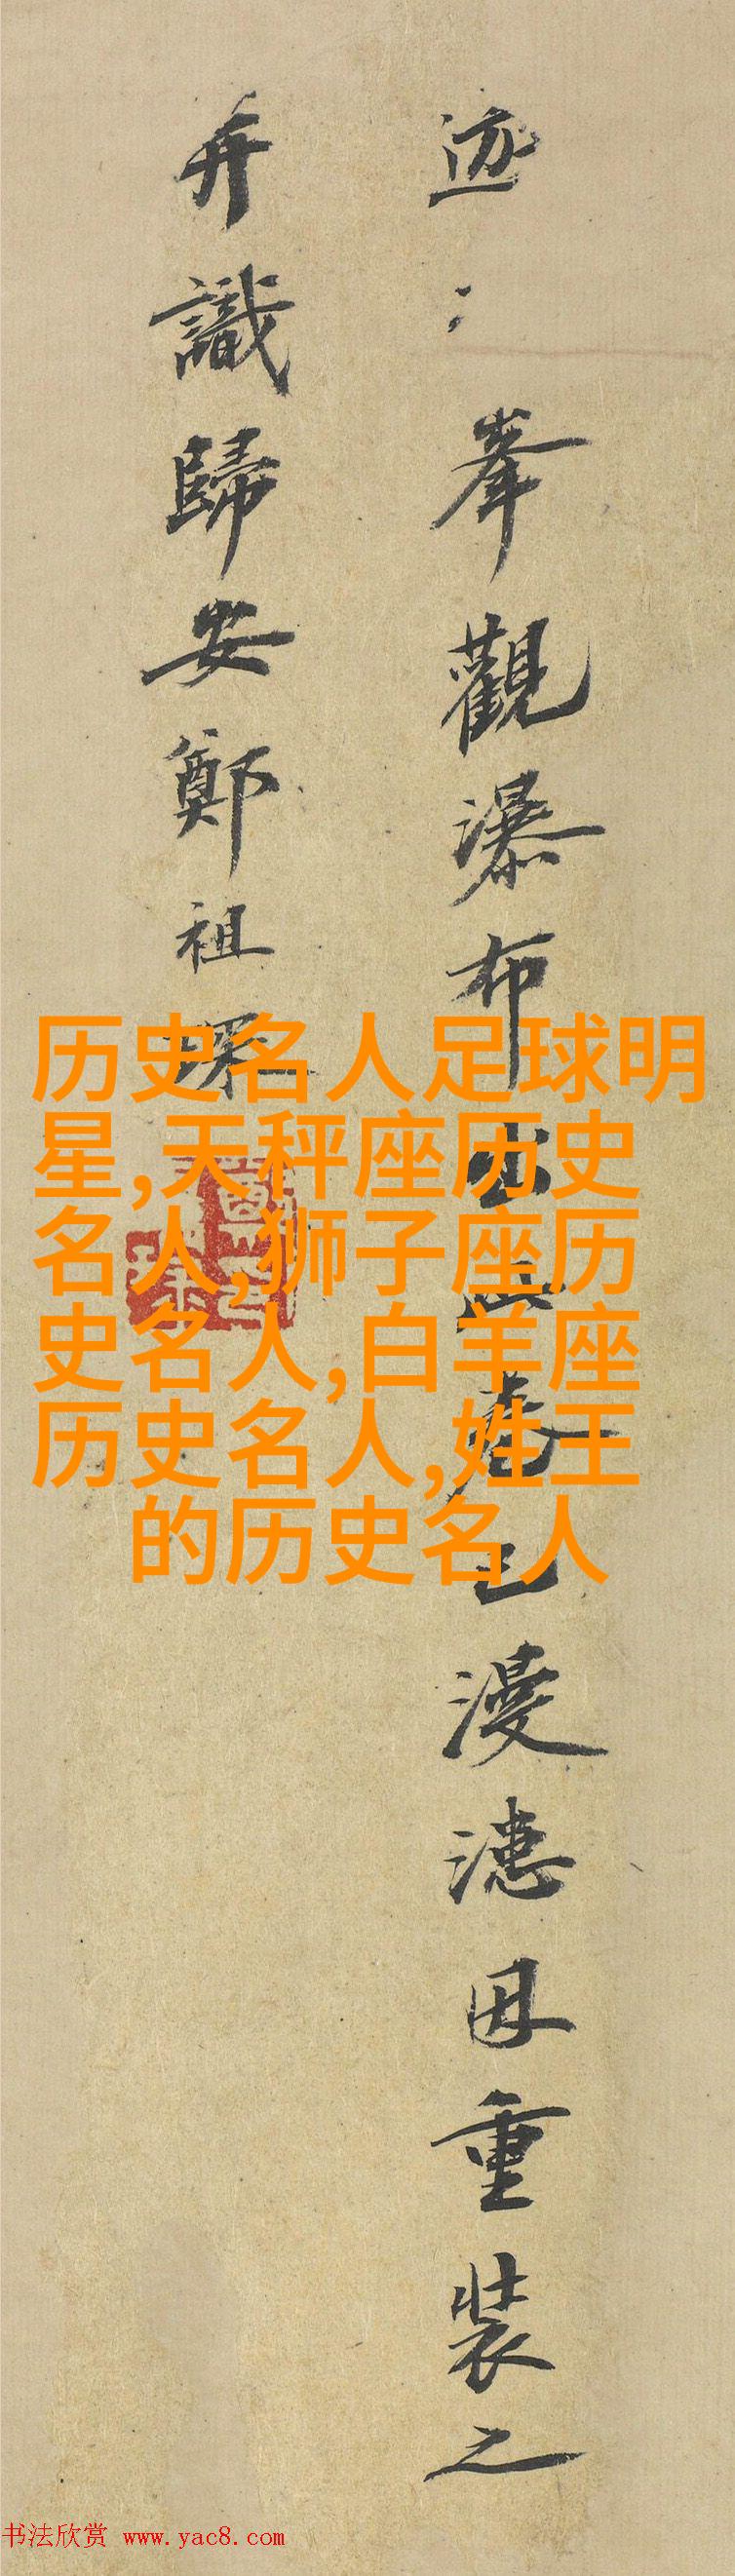 迹〻峯觀瀑布出以卷已漫漶因重裝之
弁識歸安鄭祖琛
历史名人足球明
星,天秤座历史
名人,狮子座历
史名人,白羊座
历史名人,姓王
的历史名人
书法欣赏 www.yac8.com